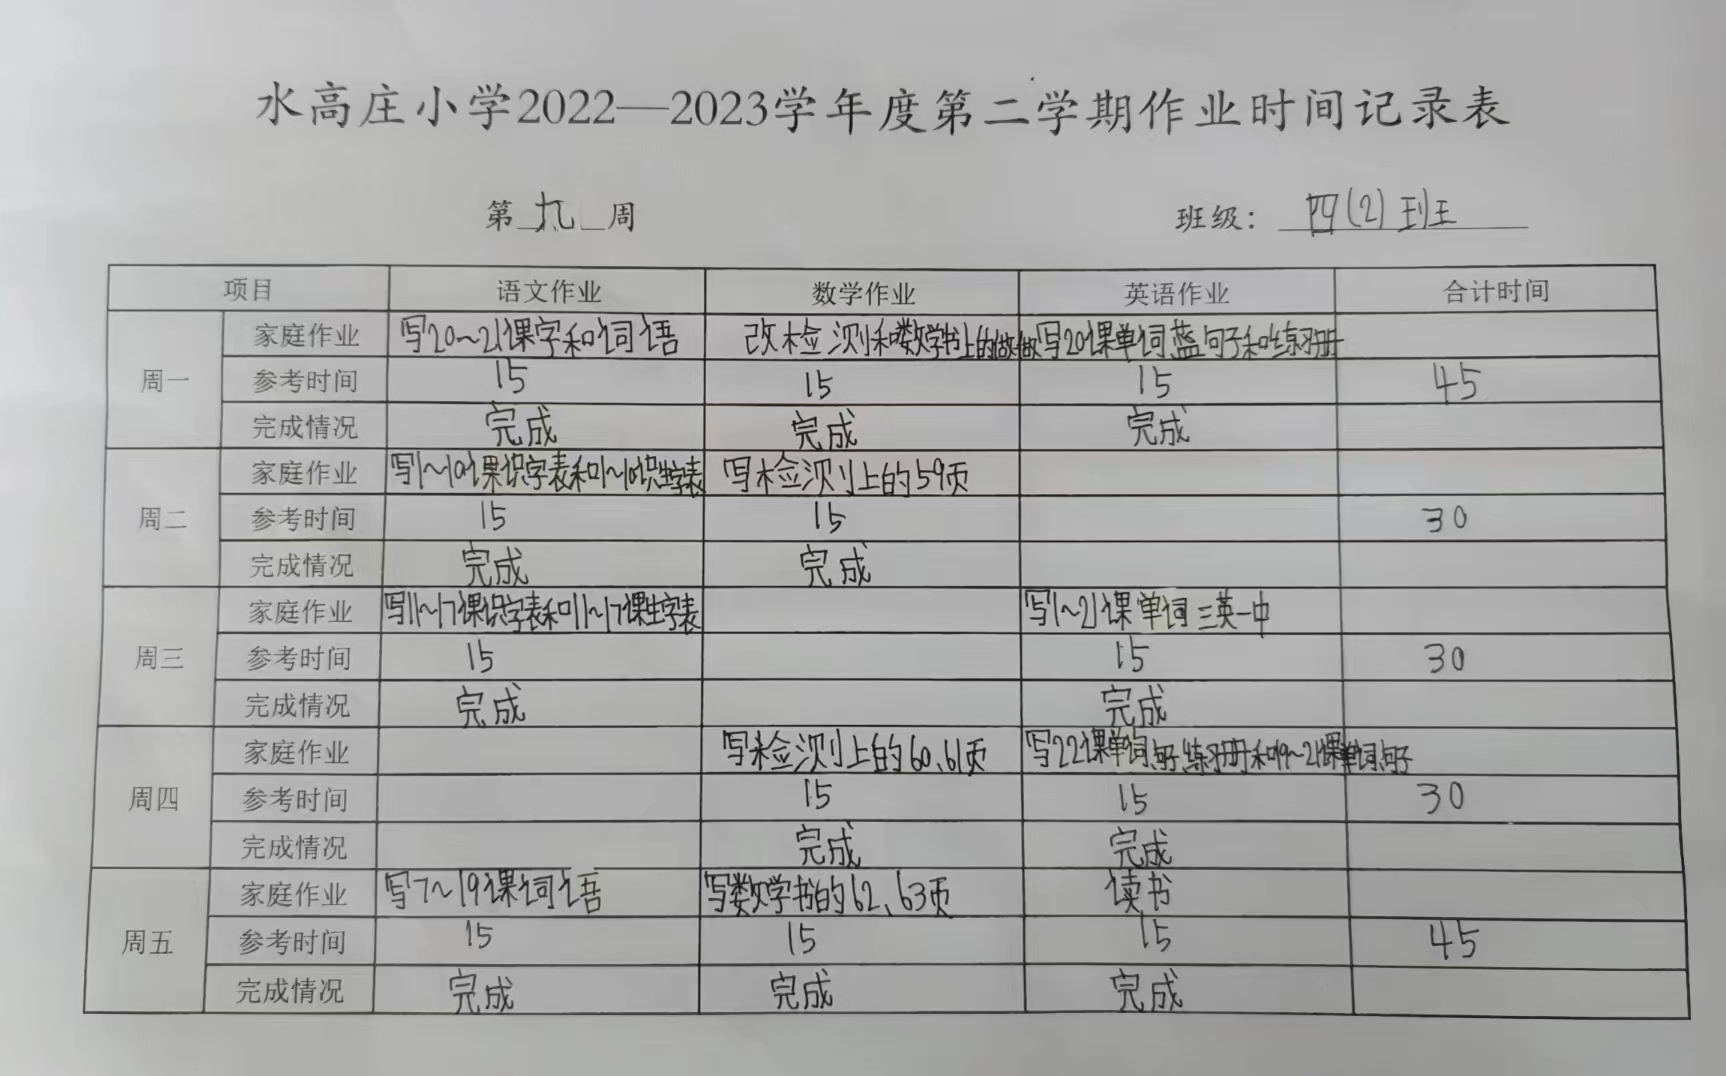 水高庄小学2022—2023学年度第二学期作业时间记录表
第 九 周 班级： 四(2)班
项目 语文作业 数学作业 英语作业 合计时间
周一 家庭作业 写20~21课字和词语 改检测和数学书上的做一做 写20课单词 句子和练习册
参考时间 15 15 15 45
完成情况 完成 完成 完成
周二 家庭作业 写1~10课识字表和1~10 字表 写检测上的59页
参考时间 15 15 30
完成情况 完成 完成
周三 家庭作业 写11~17课识字表和11~17课生字表 写1~21课单词三英一中
参考时间 15 15 30
完成情况 完成 完成
周四 家庭作业 写检测上的60、61页 写22课单词,句子,练习册和19~21课单词,句子
参考时间 15 15 30
完成情况 完成 完成
周五 家庭作业 写7~19课词语 写数学书的62、63页 读书
参考时间 15 15 15 45
完成情况 完成 完成 完成